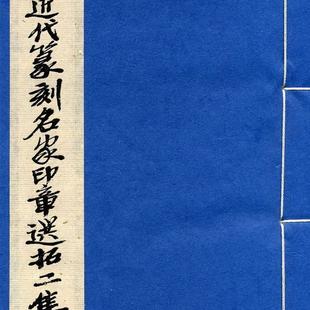 近代篆刻名家印章選拓二集